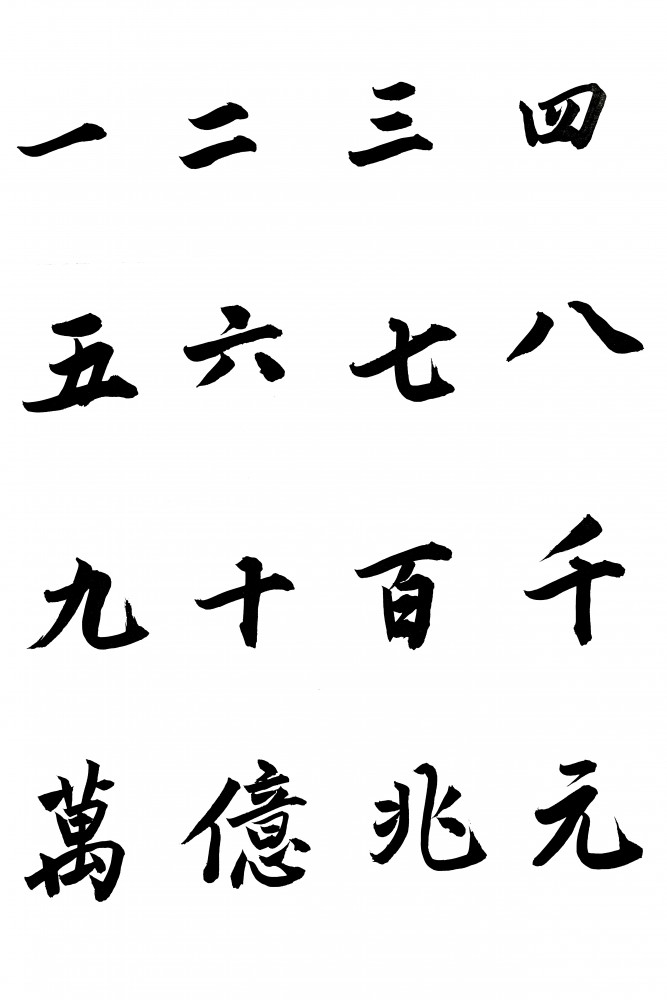 一 二 三 四
五 六 七 八
九 十 百 千
萬 億 兆 元